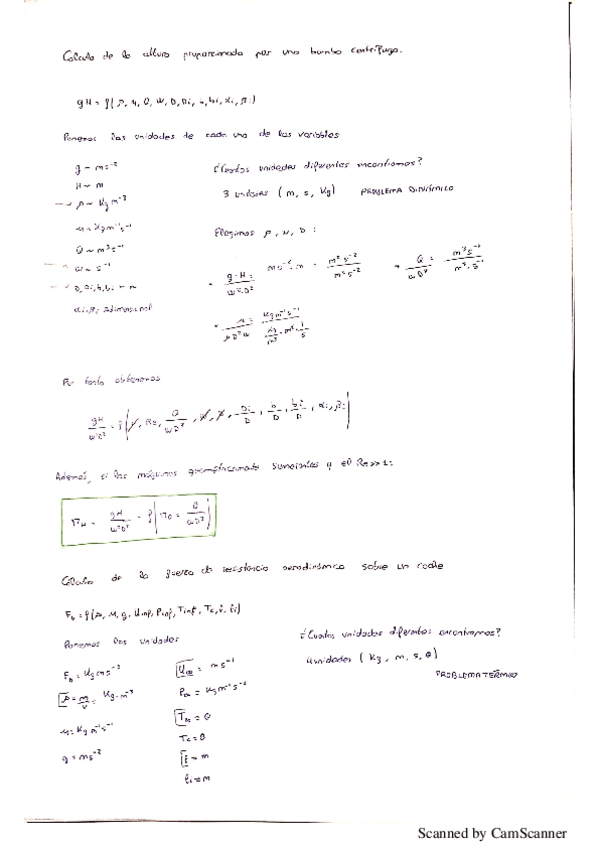 Calculo de la altura proporcionada por una bomba centrifuga.
gH = f(ρ, μ, Q, w, D, Di, b, bi, αi, βi)
Ponemos las unidades de cada una de las variables
g ~ ms⁻²
H ~ m
ρ ~ Kg m⁻³
μ ~ Kg m⁻¹ s⁻¹
Q ~ m³ s⁻¹
w ~ s⁻¹
D, Di, b, bi ~ m
αi, βi adimensional
¿Cuantas unidades diferentes encontramos?
3 unidades (m, s, Kg) PROBLEMA DINÁMICO
Elegimos ρ, w, D :
g·H / w²D² = ms⁻²·m = m² s⁻² / m² s⁻²
Q / wD³ = m³ s⁻¹ / m³·s⁻¹
μ / ρD²w = Kg m⁻¹ s⁻¹ / Kg/m³ · m² · 1/s
Por tanto obtenemos
gH / w²D² = f( Re, Q / wD³, Di / D, b / D, bi / D, αi, βi )
Además, si las máquinas geometricamente semejantes y el Re>>1:
πH = gH / w²D² = f( πQ = Q / wD³ )
Cálculo de la fuerza de resistencia aerodinámica sobre un coche
Ponemos las unidades
F_D = Kg m s⁻²
ρ = m / V = Kg·m⁻³
μ = Kg m⁻¹ s⁻¹
g = ms⁻²
U∞ = ms⁻¹
P∞ = Kg m⁻¹ s⁻²
T∞ = θ
Tc = θ
l = m
li = m
¿Cuantas unidades diferentes encontramos?
4 unidades (Kg, m, s, θ)
PROBLEMA TÉRMICO
Scanned by CamScanner